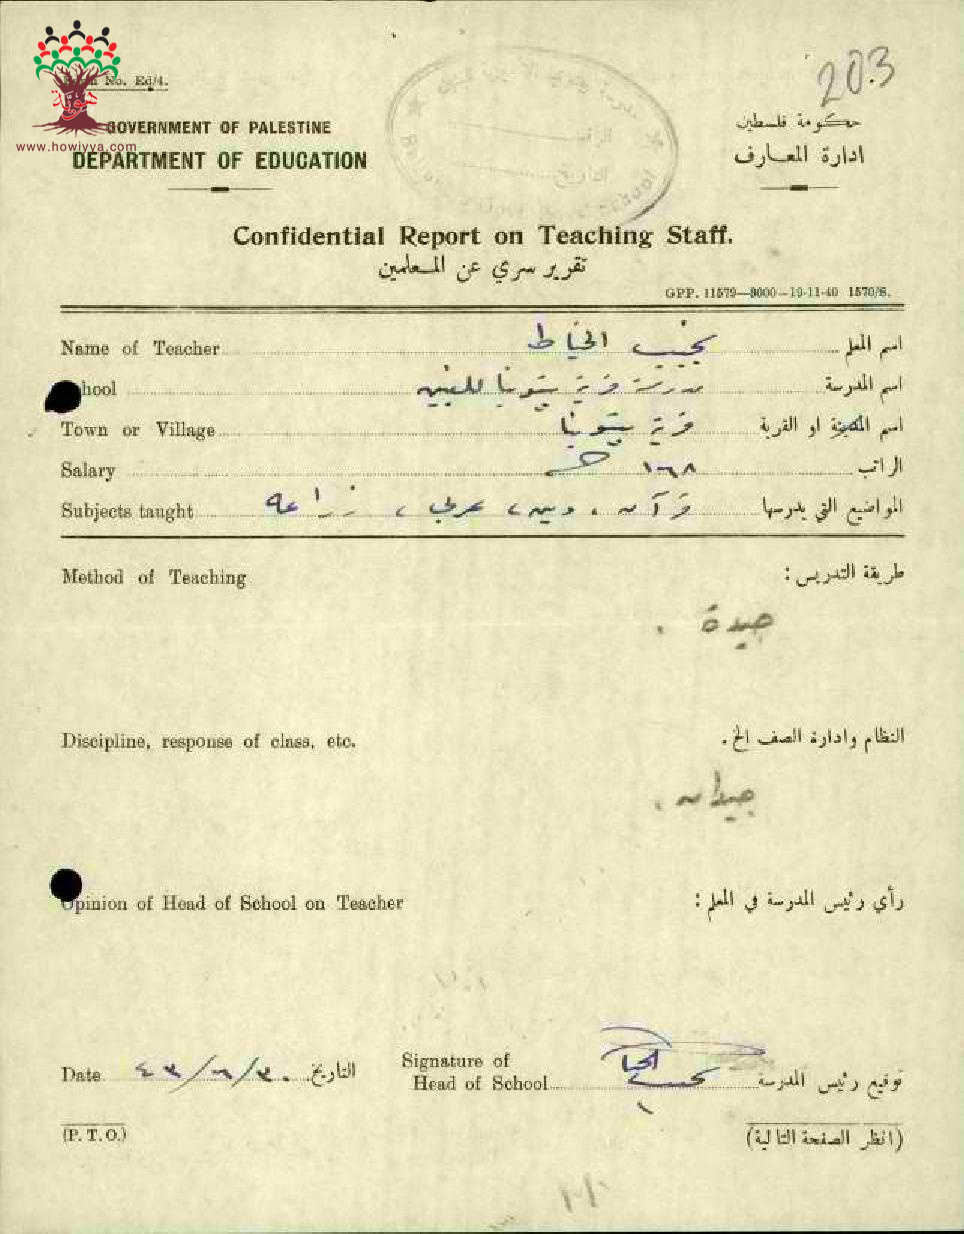 203
No. Ed/4.
هوية
www.howiyya.com
GOVERNMENT OF PALESTINE
حكومة فلسطين
DEPARTMENT OF EDUCATION
ادارة المعارف
الرقم
التاريخ
School
Confidential Report on Teaching Staff.
تقرير سري عن المعلمين
GPP. 11579—8000—19-11-40 1570/S.
Name of Teacher نجيب الخياط اسم المعلم
hool مدرسة قرية للبنين اسم المدرسة
Town or Village قرية اسم المدينة او القرية
Salary ١٦٨ الراتب
Subjects taught قرآن ، دين ، عربي ، زراعه المواضيع التي يدرسها
Method of Teaching طريقة التدريس :
جيدة .
Discipline, response of class, etc. النظام وادارة الصف الخ .
جيدان .
Opinion of Head of School on Teacher رأي رئيس المدرسة في المعلم :
Date ٤٣/٦/٣٠ التاريخ
Signature of Head of School نجيب الخياط توقيع رئيس المدرسة
(P. T. O.) (انظر الصفحة التالية)